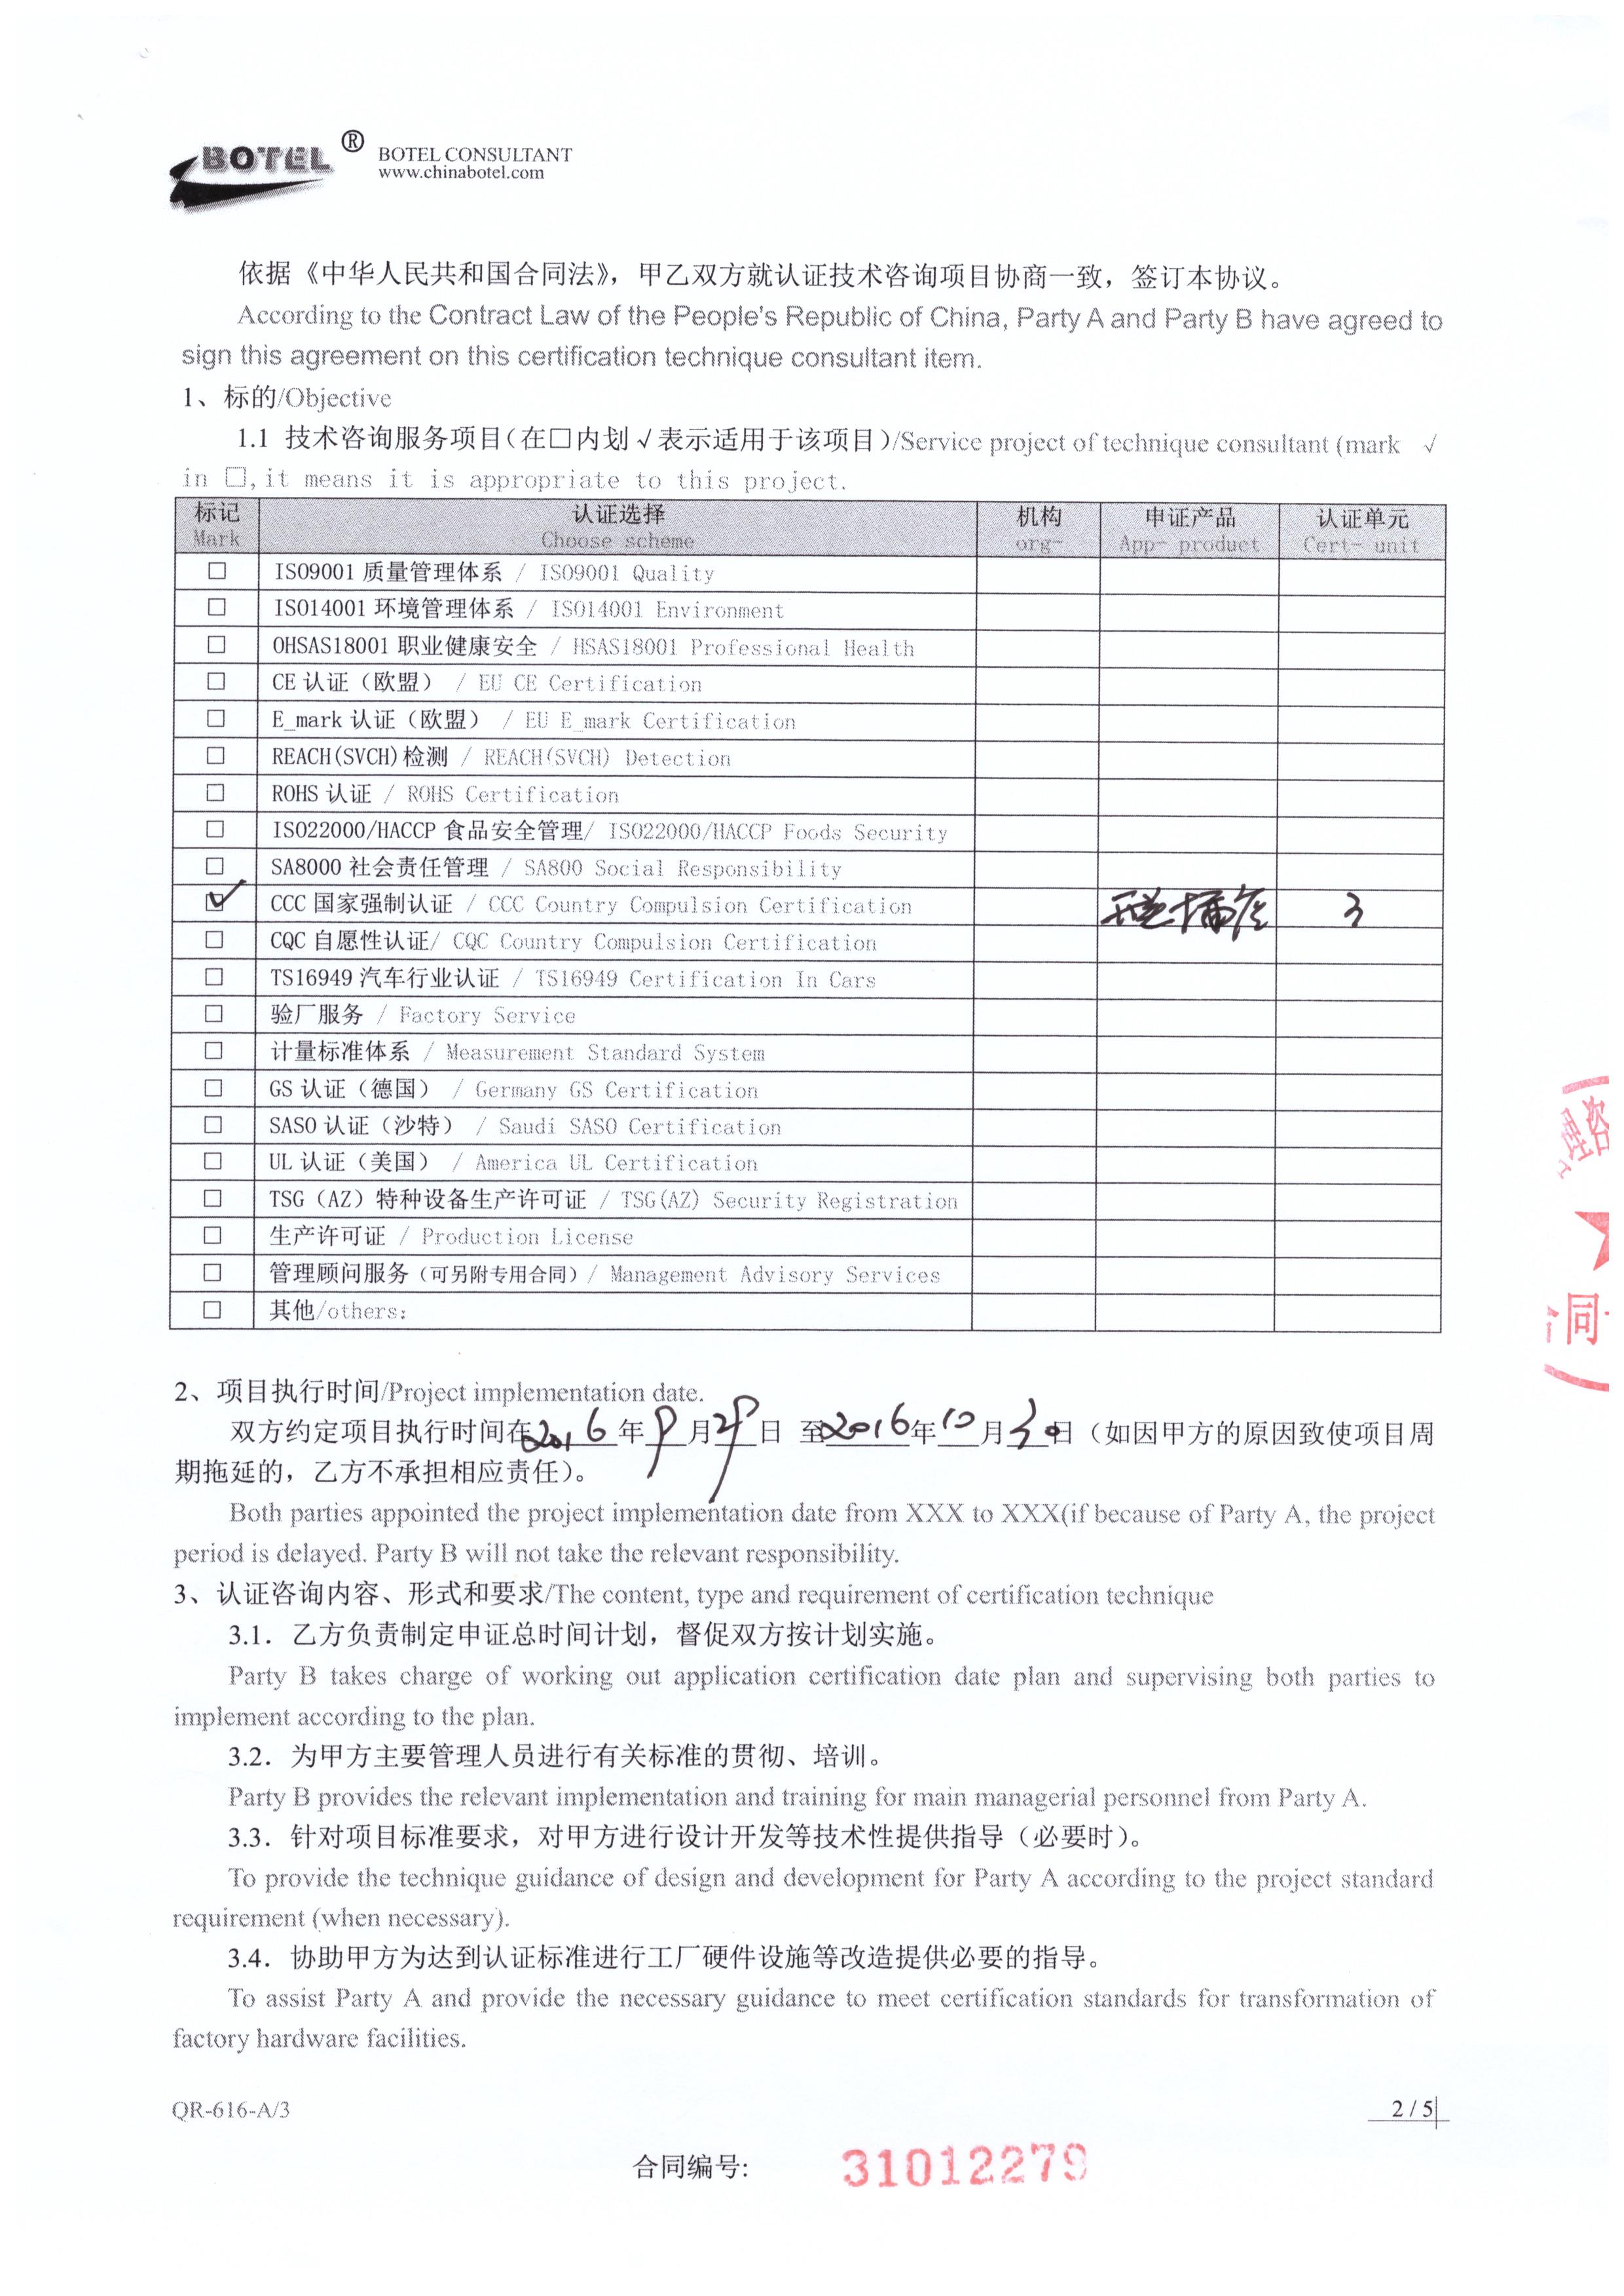 BOTEL ®
BOTEL CONSULTANT
www.chinabotel.com
依据《中华人民共和国合同法》，甲乙双方就认证技术咨询项目协商一致，签订本协议。
According to the Contract Law of the People's Republic of China, Party A and Party B have agreed to
sign this agreement on this certification technique consultant item.
1、标的/Objective
1.1 技术咨询服务项目（在□内划√表示适用于该项目）/Service project of technique consultant (mark √
in □, it means it is appropriate to this project.
标记 认证选择 机构 申证产品 认证单元
Mark Choose scheme org- App- product Cert- unit
□ ISO9001 质量管理体系 / ISO9001 Quality
□ ISO14001 环境管理体系 / ISO14001 Environment
□ OHSAS18001 职业健康安全 / HSAS18001 Professional Health
□ CE 认证（欧盟） / EU CE Certification
□ E_mark 认证（欧盟） / EU E_mark Certification
□ REACH(SVCH)检测 / REACH(SVCH) Detection
□ ROHS 认证 / ROHS Certification
□ ISO22000/HACCP 食品安全管理/ ISO22000/HACCP Foods Security
□ SA8000 社会责任管理 / SA800 Social Responsibility
☑ CCC 国家强制认证 / CCC Country Compulsion Certification 插座 3
□ CQC 自愿性认证/ CQC Country Compulsion Certification
□ TS16949 汽车行业认证 / TS16949 Certification In Cars
□ 验厂服务 / Factory Service
□ 计量标准体系 / Measurement Standard System
□ GS 认证（德国） / Germany GS Certification
□ SASO 认证（沙特） / Saudi SASO Certification
□ UL 认证（美国） / America UL Certification
□ TSG（AZ）特种设备生产许可证 / TSG(AZ) Security Registration
□ 生产许可证 / Production License
□ 管理顾问服务（可另附专用合同）/ Management Advisory Services
□ 其他/others:
2、项目执行时间/Project implementation date.
双方约定项目执行时间在2016年9月29日 至2016年10月30日（如因甲方的原因致使项目周
期拖延的，乙方不承担相应责任）。
Both parties appointed the project implementation date from XXX to XXX(if because of Party A, the project
period is delayed. Party B will not take the relevant responsibility.
3、认证咨询内容、形式和要求/The content, type and requirement of certification technique
3.1. 乙方负责制定申证总时间计划，督促双方按计划实施。
Party B takes charge of working out application certification date plan and supervising both parties to
implement according to the plan.
3.2. 为甲方主要管理人员进行有关标准的贯彻、培训。
Party B provides the relevant implementation and training for main managerial personnel from Party A.
3.3. 针对项目标准要求，对甲方进行设计开发等技术性提供指导（必要时）。
To provide the technique guidance of design and development for Party A according to the project standard
requirement (when necessary).
3.4. 协助甲方为达到认证标准进行工厂硬件设施等改造提供必要的指导。
To assist Party A and provide the necessary guidance to meet certification standards for transformation of
factory hardware facilities.
QR-616-A/3 2 / 5
合同编号: 31012279
理咨
合同